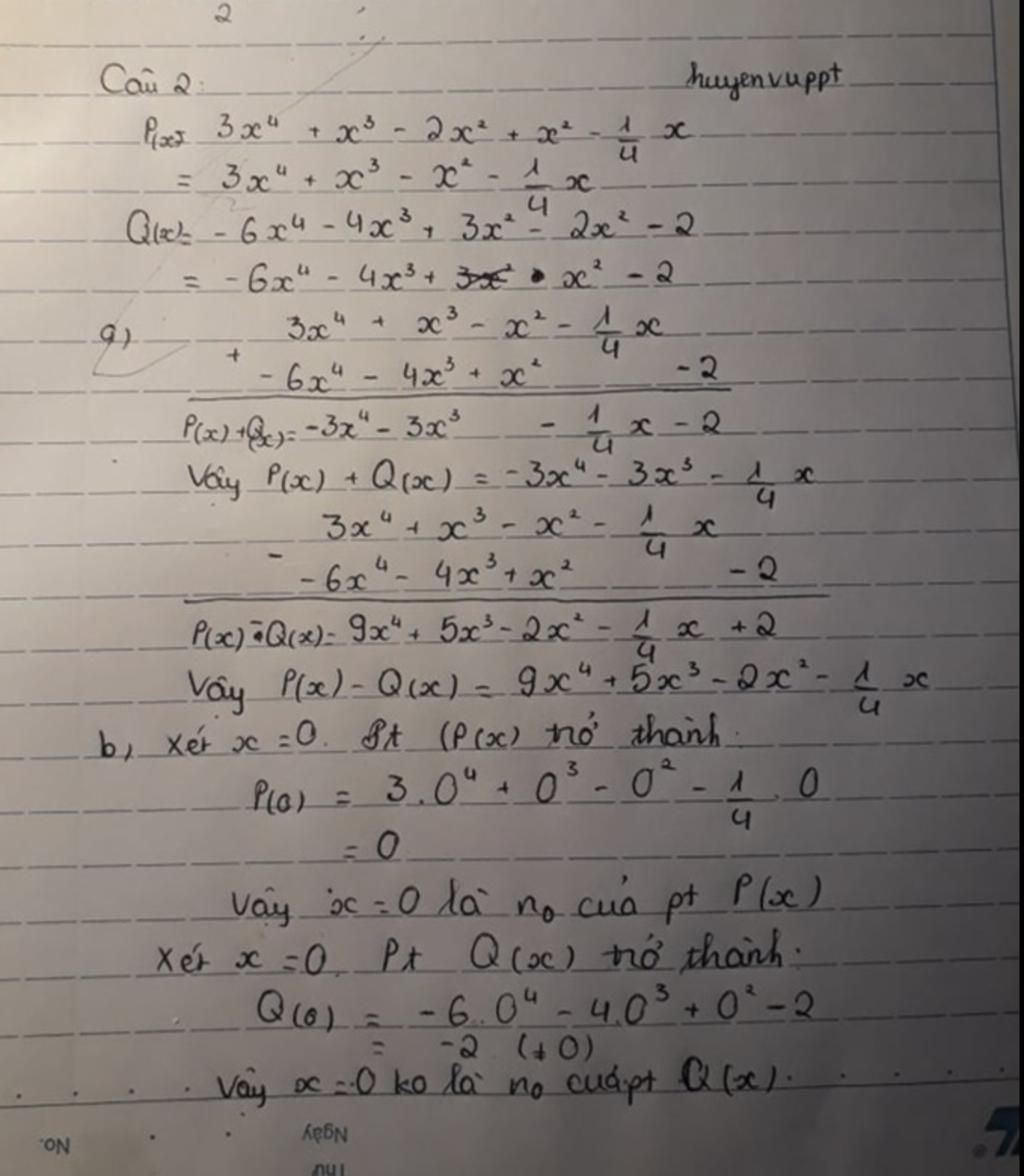 2
Câu 2: huyenvuppt
P(x)= 3x⁴ + x³ - 2x² + x² - 1/4 x
= 3x⁴ + x³ - x² - 1/4 x
Q(x)= -6x⁴ - 4x³ + 3x² - 2x² - 2
= -6x⁴ - 4x³ + x² - 2
a) 3x⁴ + x³ - x² - 1/4 x
+ -6x⁴ - 4x³ + x² - 2
P(x)+Q(x)= -3x⁴ - 3x³ - 1/4 x - 2
Vậy P(x) + Q(x) = -3x⁴ - 3x³ - 1/4 x
3x⁴ + x³ - x² - 1/4 x
- -6x⁴ - 4x³ + x² - 2
P(x)-Q(x)= 9x⁴ + 5x³ - 2x² - 1/4 x + 2
Vậy P(x) - Q(x) = 9x⁴ + 5x³ - 2x² - 1/4 x
b, Xét x = 0. Pt (P(x) trở thành:
P(0) = 3.0⁴ + 0³ - 0² - 1/4 . 0
= 0
Vậy x = 0 là n₀ của pt P(x)
Xét x = 0. Pt Q(x) trở thành:
Q(0) = -6.0⁴ - 4.0³ + 0² - 2
= -2 (≠ 0)
Vậy x = 0 ko là n₀ của pt Q(x).
No. Ngày
Thứ